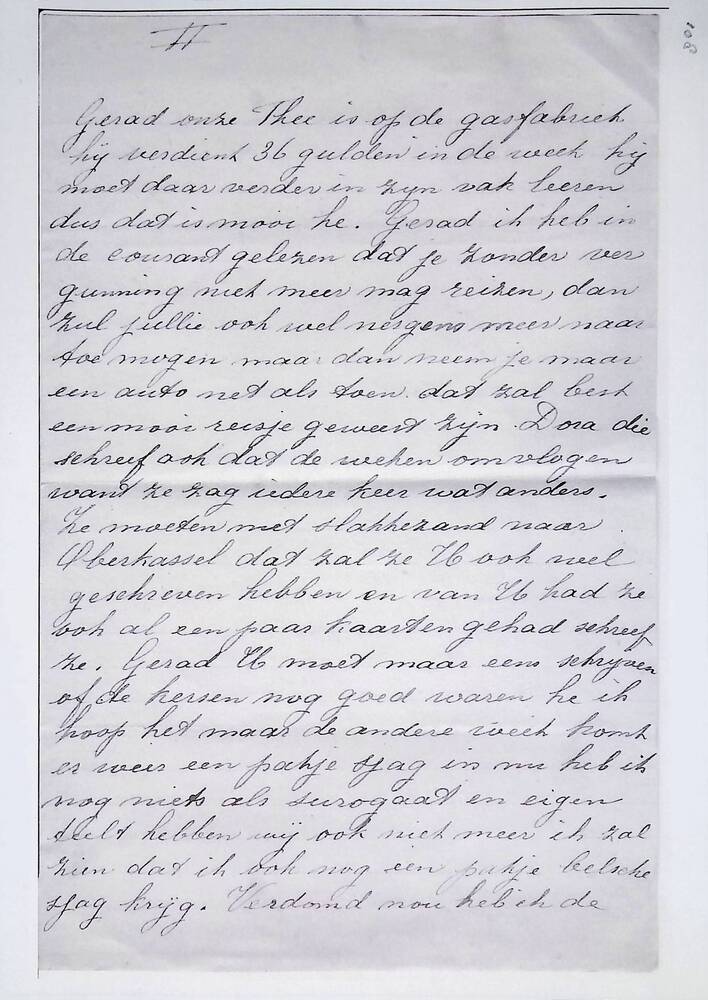 108
II
Gerad onze Thee is op de gasfabriek
hij verdient 36 gulden in de week hij
moet daar verder in zyn vak leeren
dus dat is mooi he. Gerad ik heb in
de courant gelezen dat je zonder ver
gunning niet meer mag reizen, dan
zul jullie ook wel nergens meer naar
toe mogen maar dan neem je maar
een auto net als toen. dat zal best
een mooi reisje geweest zijn. Dora die
schreef ook dat de weken omvlogen
want ze zag iedere keer wat anders.
Ze moeten met slakkezand naar
Oberkassel dat zal ze U ook wel
geschreven hebben en van U had ze
ook al een paar kaarten gehad schreef
ze. Gerad U moet maar eens schrijven
of de kersen nog goed waren he ik
hoop het maar de andere week komt
er weer een pakje sjag in nu heb ik
nog niets als surogaat en eigen
teelt hebben wij ook niet meer ik zal
zien dat ik ook nog een pakje belsche
sjag krijg. Verdomd nou heb ik de